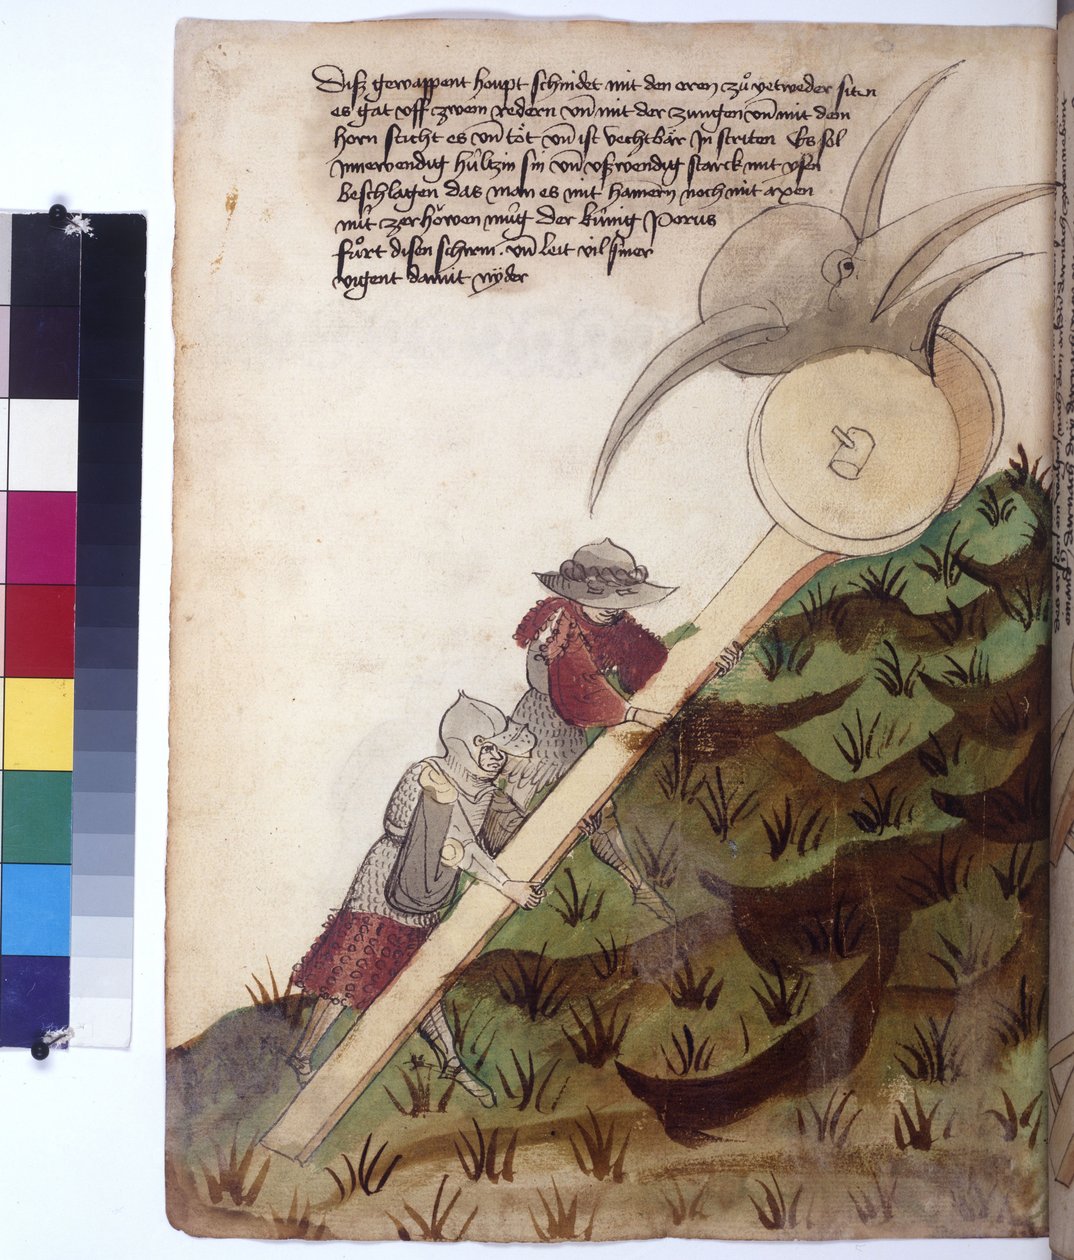 Disz gewappent houpt schnidet mit den oren zů yetweder siten
es gat vff zwein redern vn̄ mit der zungen vn̄ mit dem
horn sticht es vn̄ töt vn̄ ist vechtbär Jn striten Es sol
Jnnerwendig hu̍ltzin sin vn̄ vszwendig starck mit ysen
beschlagen das man es mit hamern noch mit axen
nit zerhöwen mu̍g der ku̍nig Porus
fůrt disen schirm. vn̄ leit vil siner
vigent damit nyder